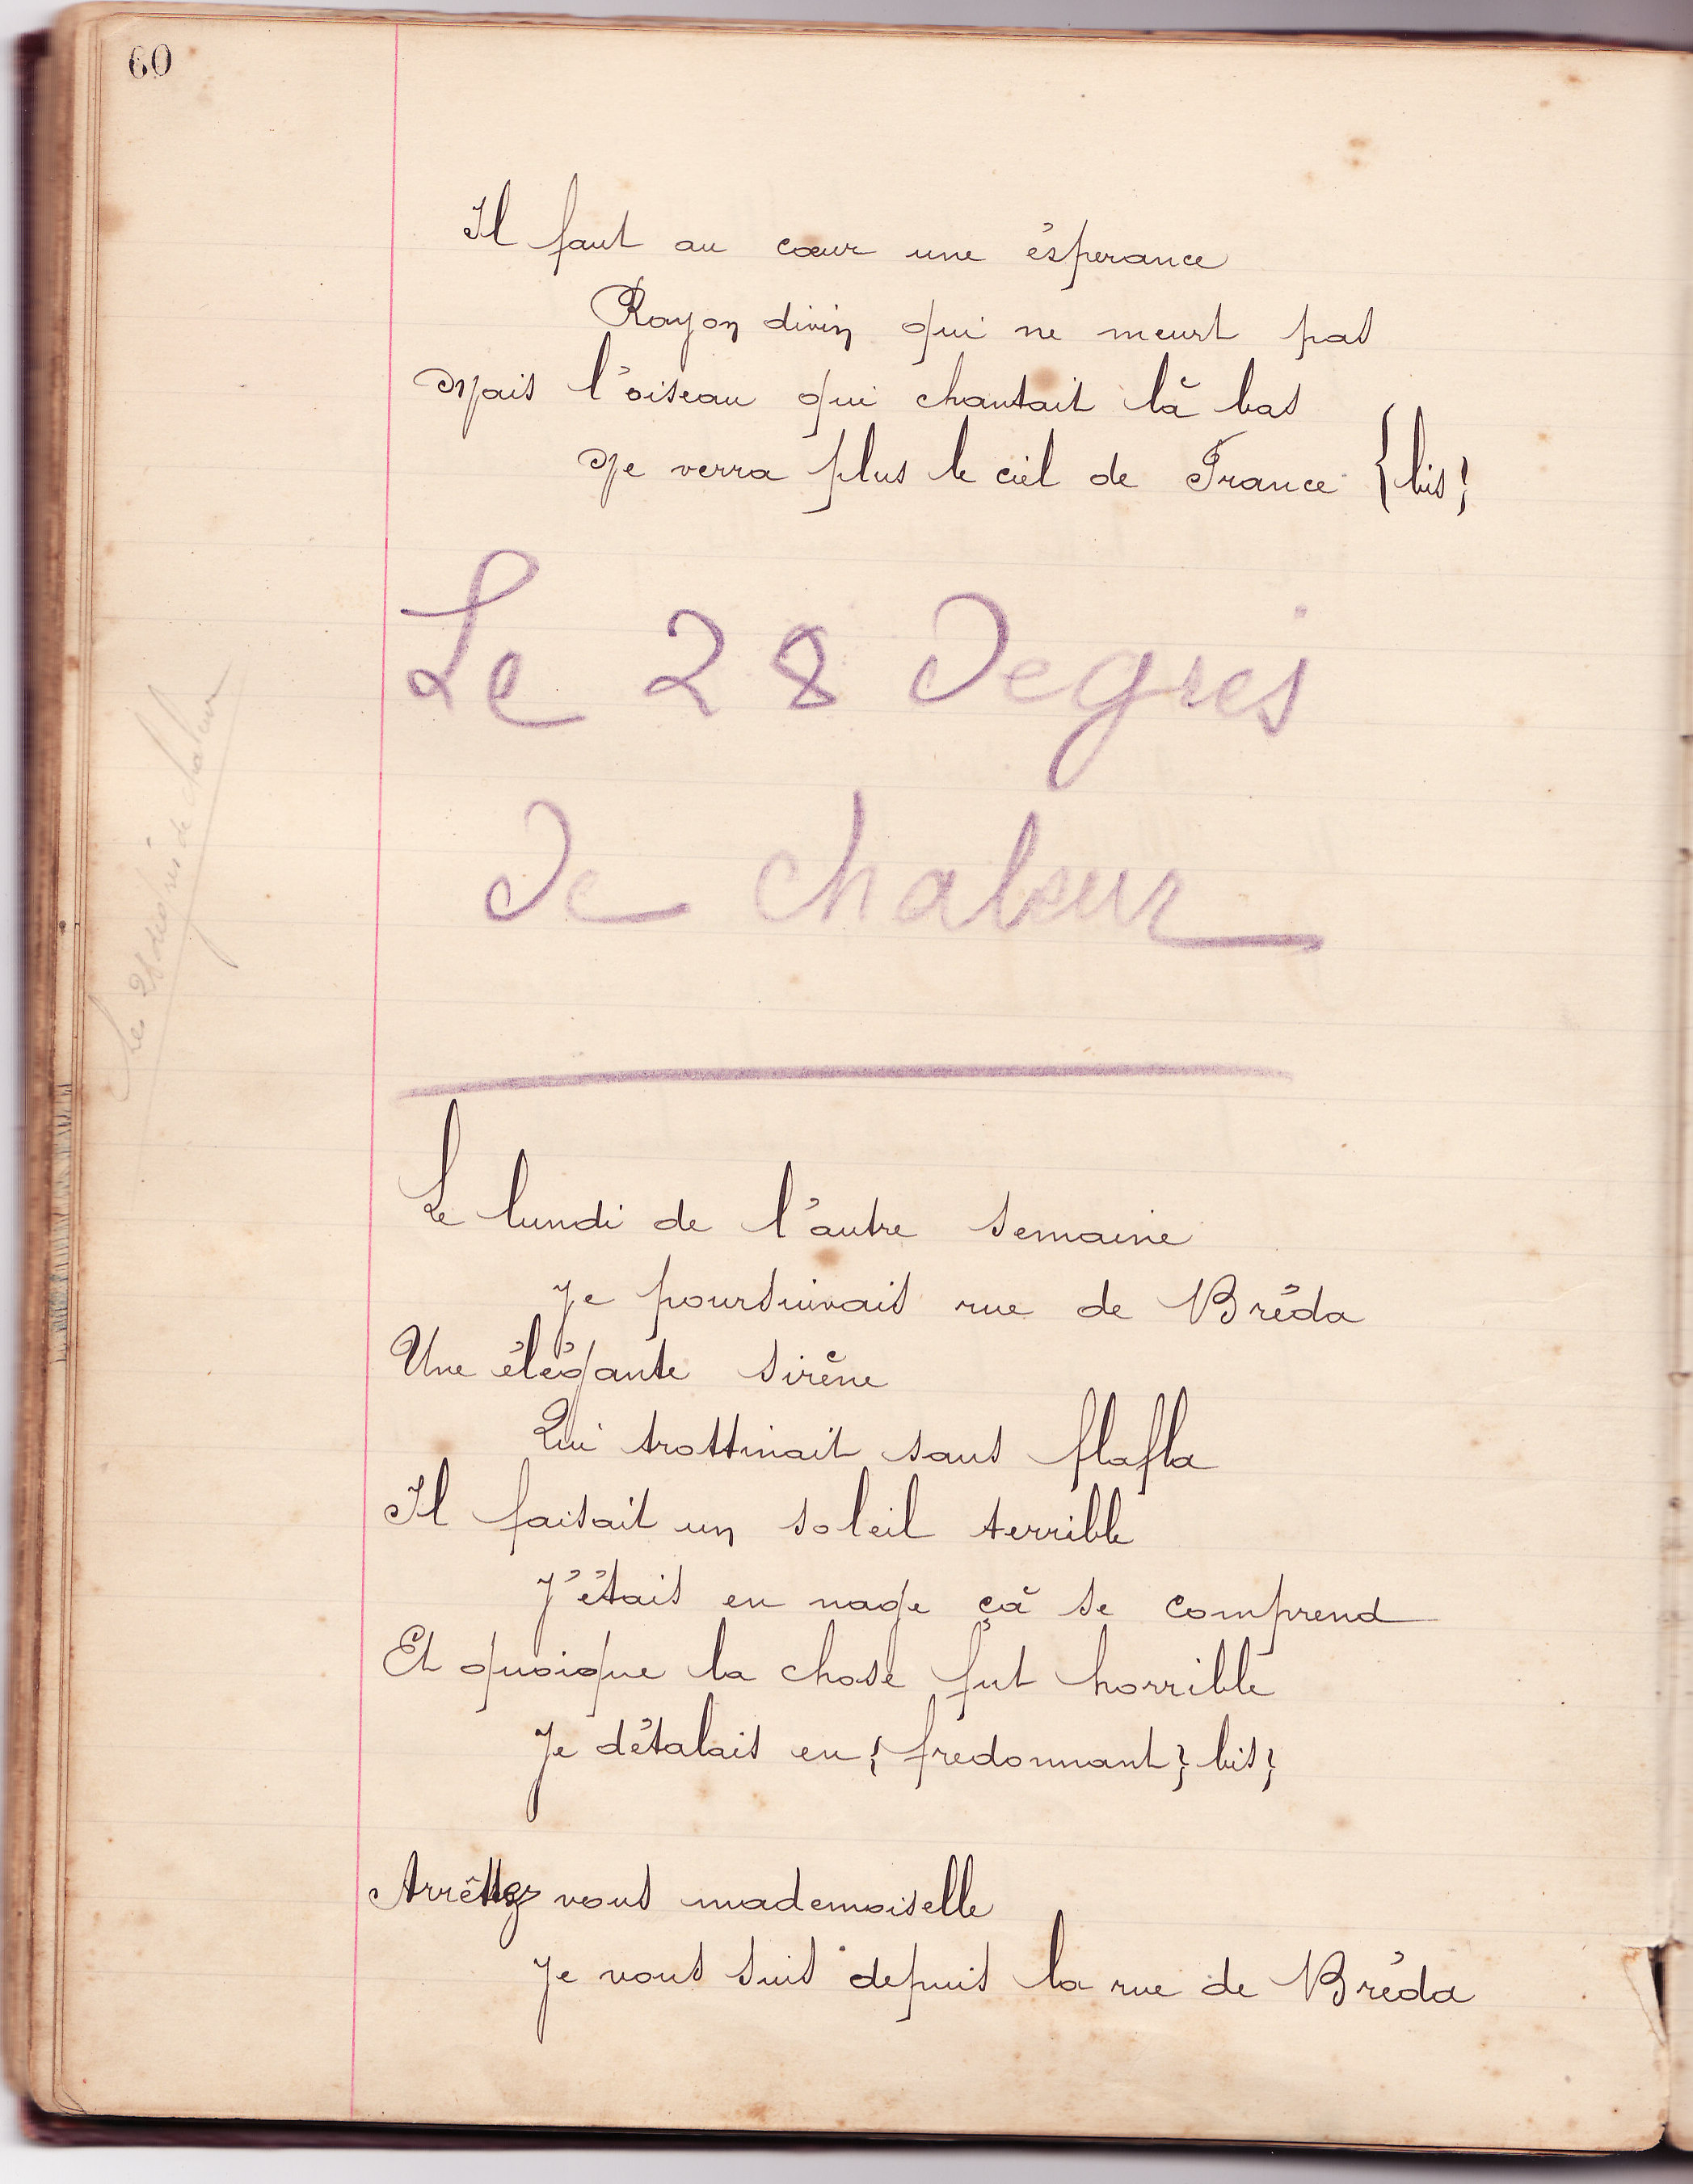 60
Il faut au cœur une ésperance
Rayon divin qui ne meurt pas
Mais l'oiseau qui chantait là bas
Ne verra plus le ciel de France {bis}
Le 28 Degres
De chaleur
Les 28 degrés de chaleur
Le lundi de l'autre semaine
Je poursuivais rue de Bréda
Une élégante sirène
Qui trottinait sans flafla
Il faisait un soleil terrible
J'étais en nage çà se comprend
Et quoique la chose fut horrible
Je détalais en {fredonnant} bis}
Arrêttez vous mademoiselle
Je vous suis depuis la rue de Bréda